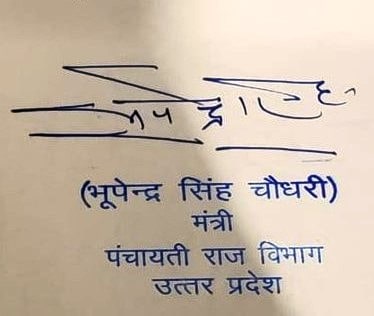 (भूपेन्द्र सिंह चौधरी)
मंत्री
पंचायती राज विभाग
उत्तर प्रदेश